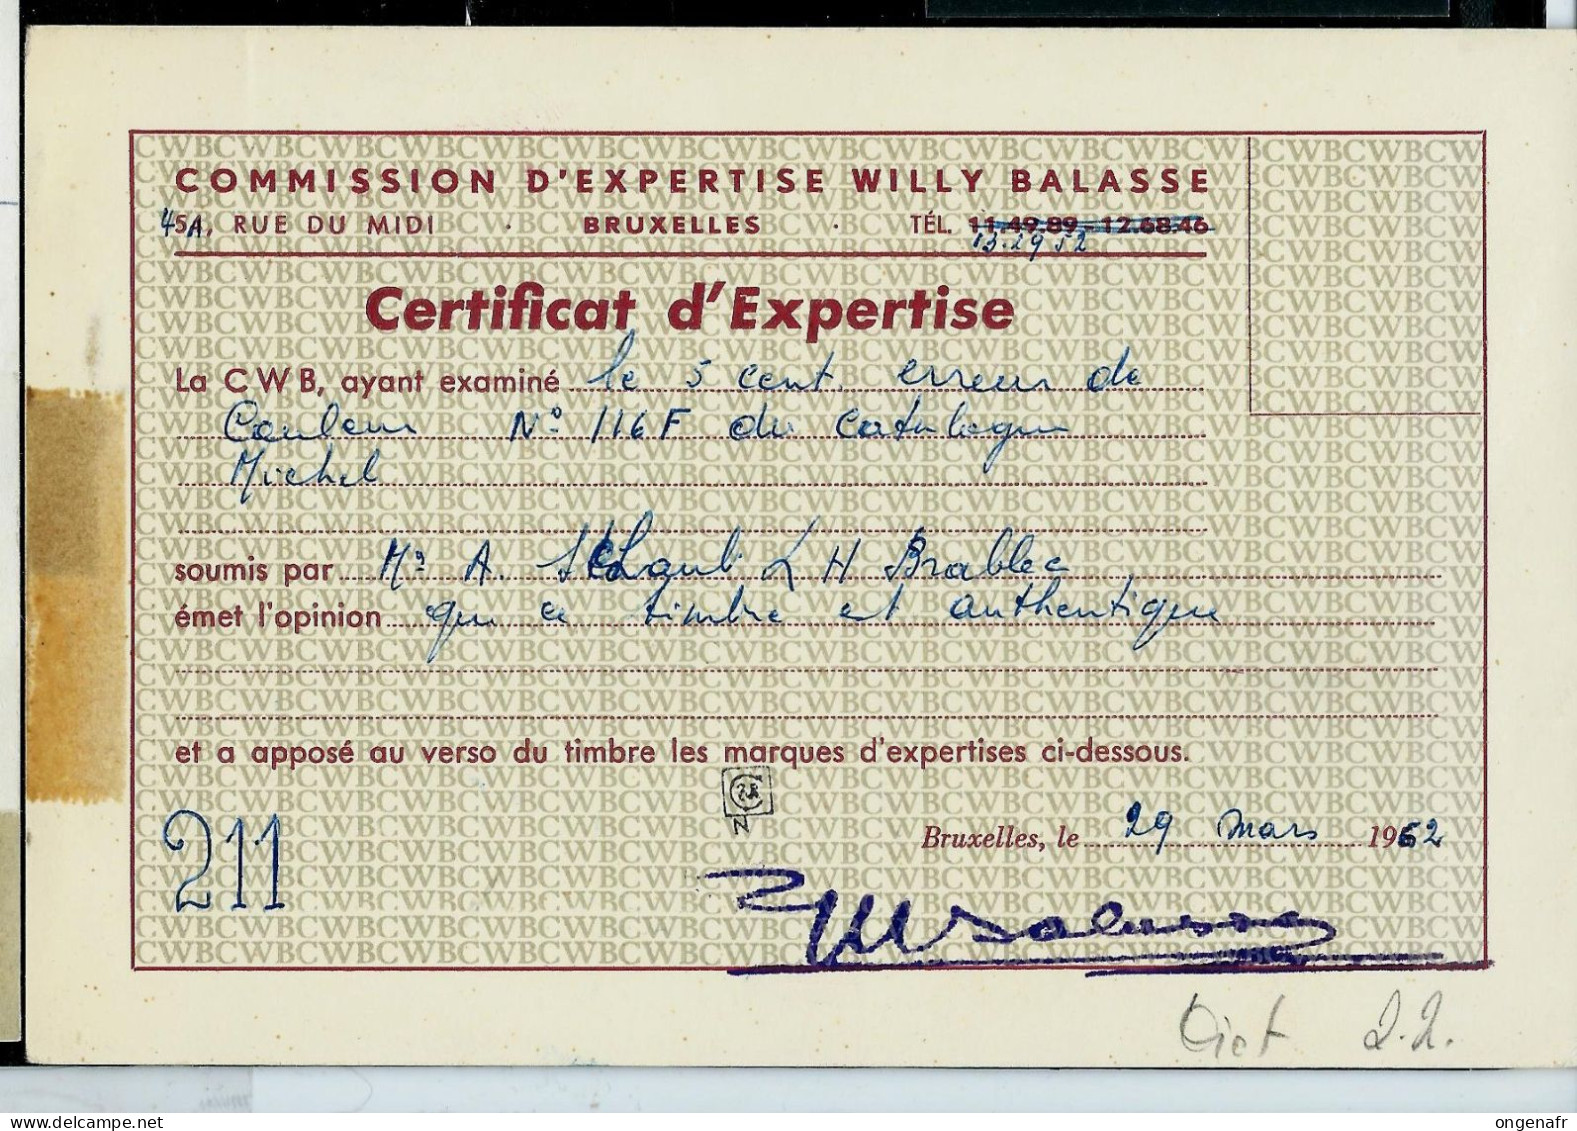 COMMISSION D'EXPERTISE WILLY BALASSE
45A, RUE DU MIDI · BRUXELLES · TÉL. 11.49.89 - 12.68.46
13.29 52
Certificat d'Expertise
La CWB, ayant examiné le 5 cent. erreur de
Couleur N° 116F du Catalogue
Michel
soumis par Mr A. H Brablec
émet l'opinion que ce timbre est authentique
et a apposé au verso du timbre les marques d'expertises ci-dessous.
211
Bruxelles, le 29 mars 1962
WBalasse
2.2.
ongenafr